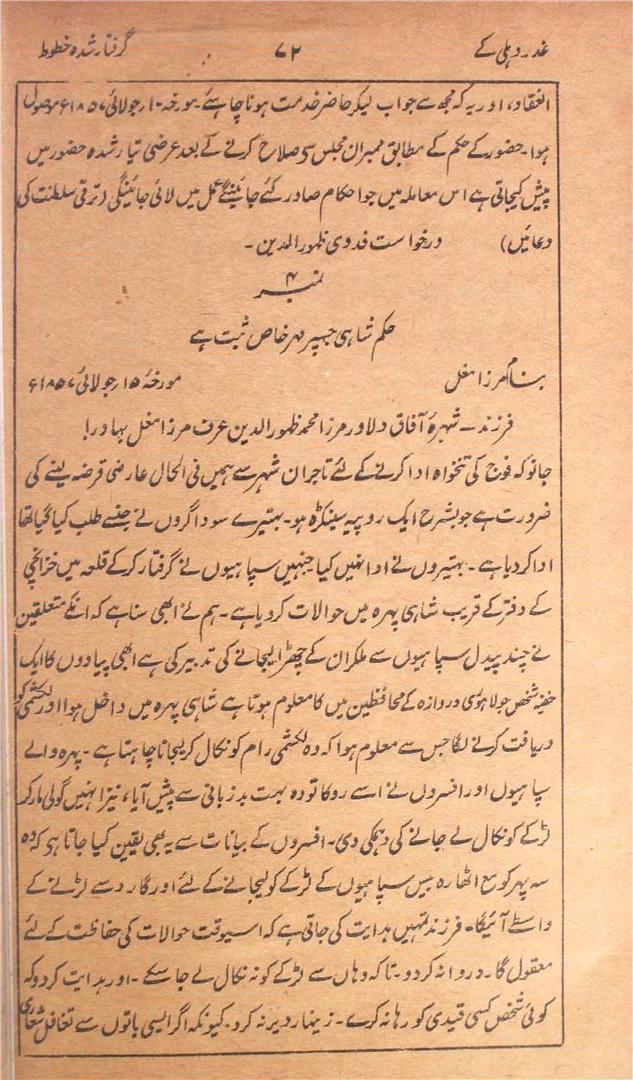 غدر دہلی کے ۷۲ گرفتار شدہ خطوط
انعقاد، اور یہ کہ مجھ سے جواب لیکر حاضر خدمت ہونا چاہئے۔ مورخہ ۱۰ جولائی ۱۸۵۷ء موصول
ہوا۔ حضور کے حکم کے مطابق ممبران مجلس سی صلاح کرنے کے بعد عرضی تیار شدہ حضور میں
پیش کیجاتی ہے اس معاملہ میں جو احکام صادر کئے جائینگے عمل میں لائی جائینگی (ترقی سلطنت کی
دعائیں) درخواست فدوی ظہور الدین۔
نمبر ۴
حکم شاہی جسپر مہر خاص ثبت ہے
بنام مرزا مغل مورخہ ۱۵ جولائی ۱۸۵۷ء
فرزند۔ شہرۂ آفاق دلاور مرزا محمد ظہور الدین عرف مرزا مغل بہادر!
جانو کہ فوج کی تنخواہ ادا کرنے کے لئے تاجران شہر سے ہمیں فی الحال عارضی قرضہ لینے کی
ضرورت ہے جو بشرح ایک روپیہ سینکڑہ ہو۔ بہتیرے سوداگروں نے جنسے طلب کیا گیا تھا
ادا کردیا ہے۔ بہتیروں نے ادا نہیں کیا جنہیں سپاہیوں نے گرفتار کرکے قلعہ میں خزانچی
کے دفتر کے قریب شاہی پہرہ میں حوالات کردیا ہے۔ ہم نے ابھی سنا ہے کہ انکے متعلقین
نے چند پیدل سپاہیوں سے ملکر ان کے چھڑا لیجانے کی تدبیر کی ہے ابھی پیادوں کا ایک
شخص جو لاہوری دروازہ کے محافظین میں کا معلوم ہوتا ہے شاہی پہرہ میں داخل ہوا اور لکشمی کو
دریافت کرنے لگا جس سے معلوم ہوا کہ وہ لکشمی رام کو نکال کر لیجانا چاہتا ہے۔ پہرہ والے
سپاہیوں اور افسروں نے اسے روکا تو وہ بہت بدزبانی سے پیش آیا، نیز انہیں گولی مار کر
لڑکے کو نکال لے جانے کی دہمکی دی۔ افسروں کے بیانات سے یہ بھی یقین کیا جاتا ہو کہ وہ
سہ پہر کو مع اٹھارہ بیس سپاہیوں کے لڑکے کو لیجانے کے لئے اور گارد سے لڑنے کے
واسطے آئیگا۔ فرزند تمہیں ہدایت کی جاتی ہے کہ اسیوقت حوالات کی حفاظت کے لئے
معقول گارد روانہ کردو۔ تاکہ وہاں سے لڑکے کو نہ نکال لے جاسکے۔ اور ہدایت کردو کہ
کوئی شخص کسی قیدی کو رہا نہ کرے۔ زینہار دیر نہ کرو۔ کیونکہ اگر ایسی باتوں سے تغافل شعاری